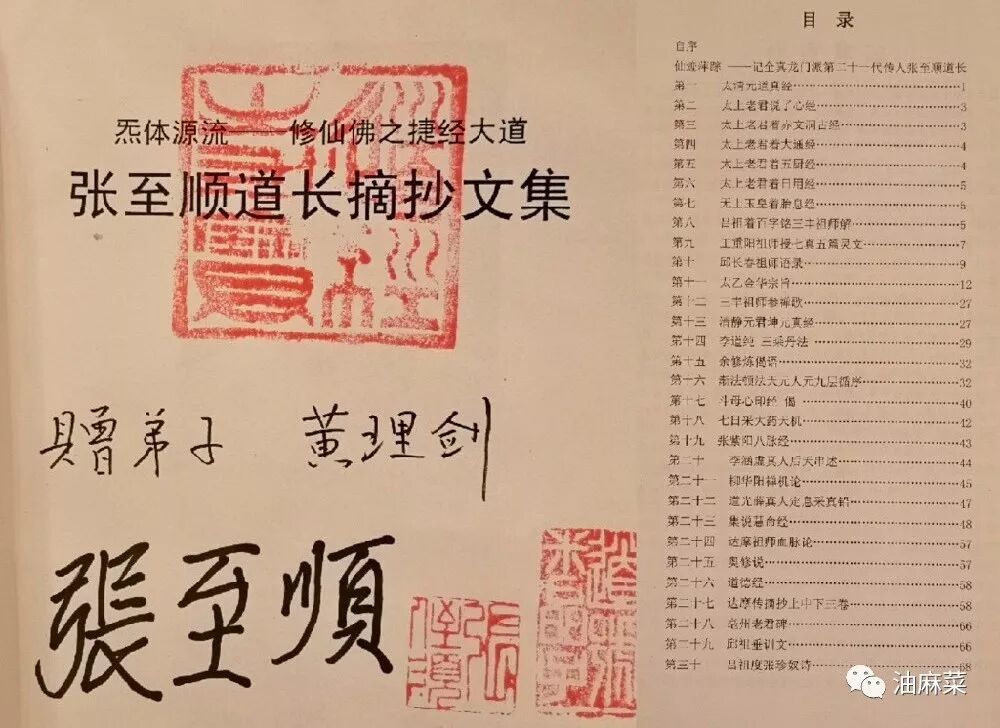 炁体源流——修仙佛之捷经大道
张至顺道长摘抄文集
赠弟子 黄理剑
張至順
目录
自序
仙迹萍踪 ——记全真龙门派第二十一代传人张至顺道长
第一 太清元道真经 1
第二 太上老君说了心经 3
第三 太上老君着赤文洞古经 3
第四 太上老君着大通经 4
第五 太上老君着五厨经 4
第六 太上老君着日用经 5
第七 无上玉皇着胎息经 5
第八 吕祖着百字铭三丰祖师解 5
第九 王重阳祖师授七真五篇灵文 7
第十 邱长春祖师语录 9
第十一 太乙金华宗旨 12
第十二 三丰祖师参禅歌 27
第十三 清静元君坤元真经 27
第十四 李道纯 三乘丹法 29
第十五 余修炼偈语 32
第十六 渐法顿法天元人元九层循序 32
第十七 斗母心印经 偈 40
第十八 七日采大药天机 42
第十九 张紫阳八脉经 43
第二十 李涵虚真人后天串述 44
第二十一 柳华阳禅机论 45
第二十二 道光薛真人定息采真铅 47
第二十三 集说慧命经 48
第二十四 达摩祖师血脉论 57
第二十五 奥修说 57
第二十六 道德经 58
第二十七 达摩传摘抄上中下三卷 58
第二十八 亳州老君碑 66
第二十九 邱祖垂训文 66
第三十 吕祖度张珍奴诗 68
油麻菜